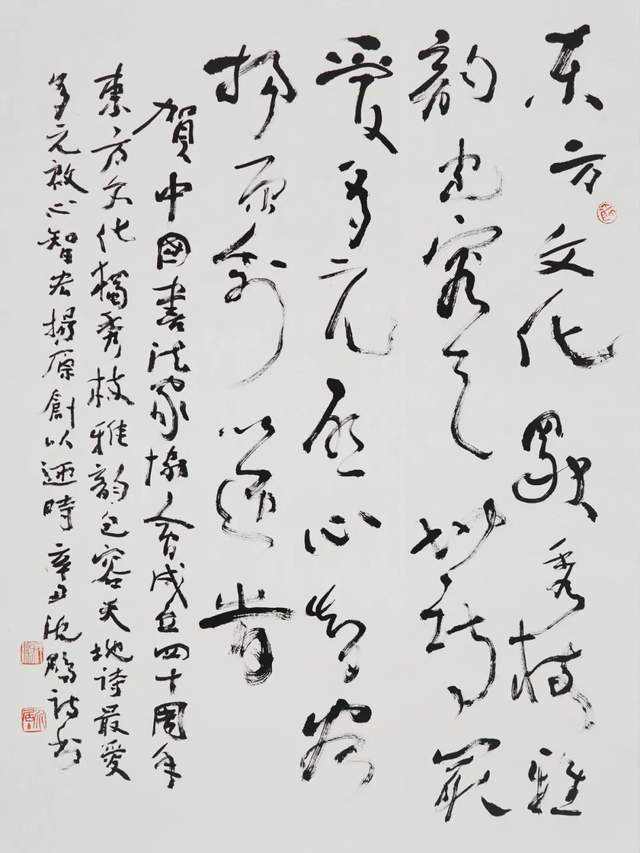 东方文化獨秀枝雅
韵包容天地詩最
愛多元啟心智宏
揚原創以適時
賀中國書法家協會成立四十周年
東方文化獨秀枝雅韵包容天地詩最愛
多元啟心智宏揚原創以適時辛丑沈鵬詩書